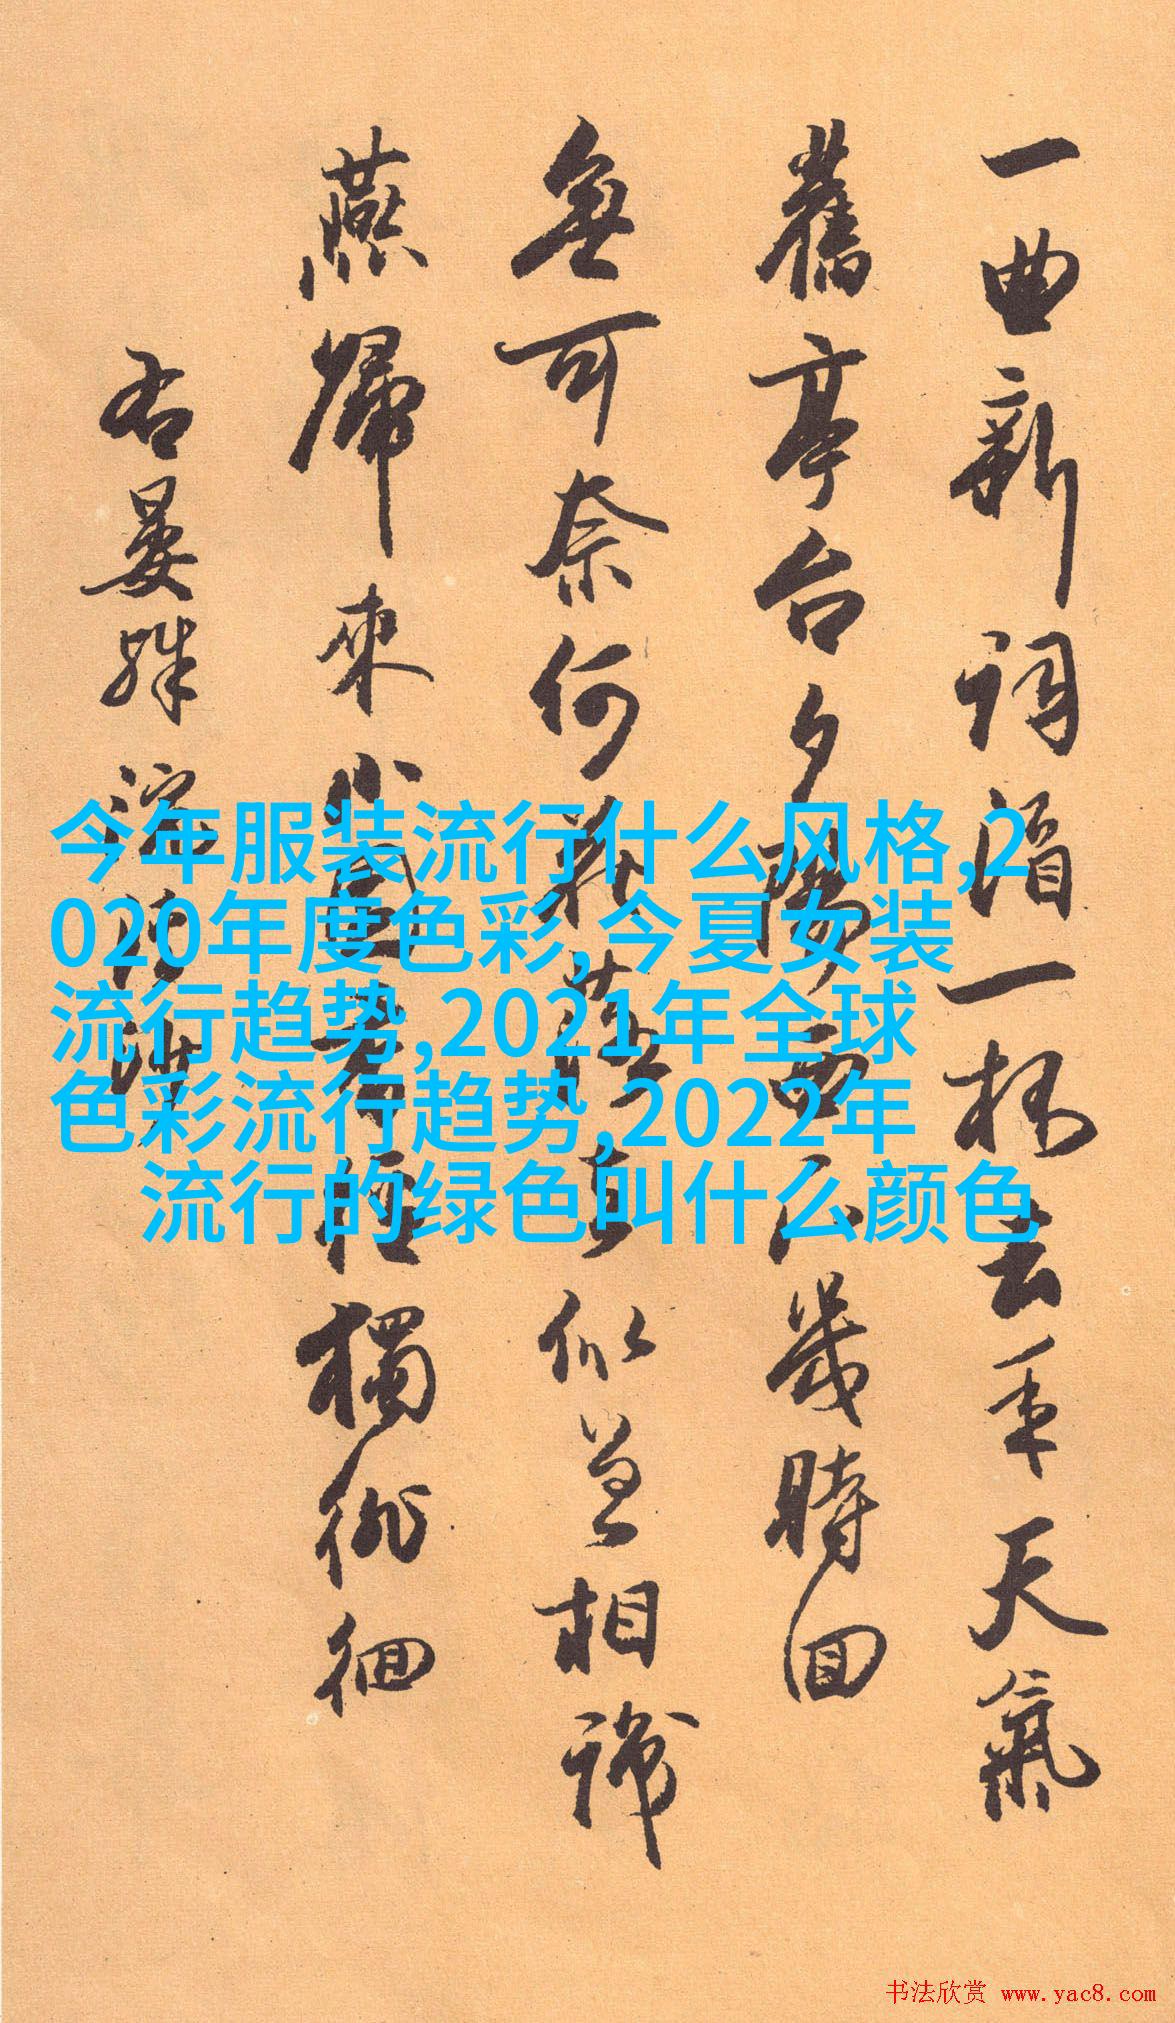 一曲新詞酒一杯去年天氣
舊亭台夕陽西下幾時回
無可奈何花落去似曾相識
燕歸來小園香徑獨徘徊
右晏殊浣溪沙
今年服装流行什么风格,2
020年度色彩,今夏女装
流行趋势,2021年全球
色彩流行趋势,2022年
流行的绿色叫什么颜色
书法欣赏 www.yac8.com